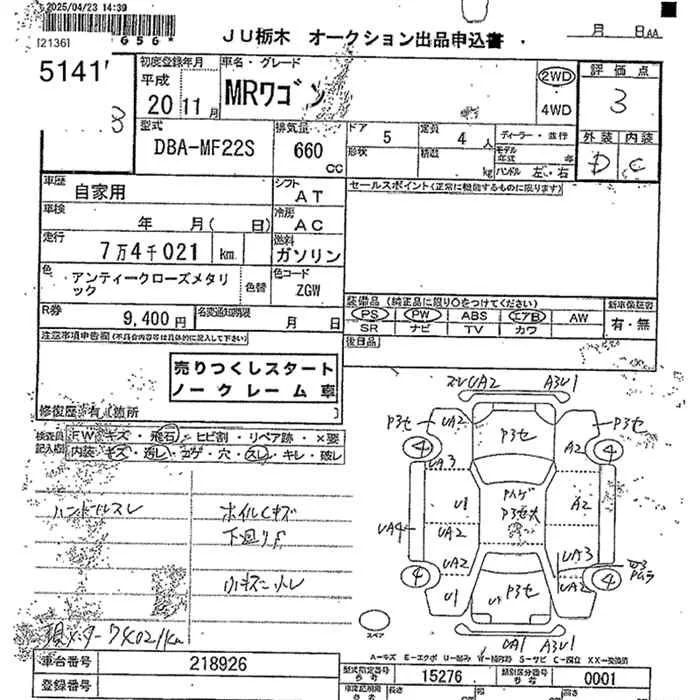 2025/04/23 14:39
[2136]
656*
JU栃木 オークション出品申込書
月 日AA
5141
初度登録年月
平成
20 11月
車名・グレード
MRワゴン
2WD
4WD
評価点
3
型式
DBA-MF22S
排気量
660
CC
ドア 5
定員 4 人
形状
積載
kg
ディーラー・並行
モデル年式 年
ハンドル 左・右
外装 内装
D C
車歴
自家用
シフト
AT
セールスポイント(正常に機能するものに限ります)
車検
年 月( 日)
冷房
AC
走行
7万4千021 km
燃料
ガソリン
色
アンティークローズメタリック
色替
色コード
ZGW
装備品(純正品に限り○をつけてください)
PS PW ABS エアB AW
SR ナビ TV カワ
新車保証書
有・無
R券
9,400円
名変通知期限
月 日
後日品
注意事項申告欄(不具合内容等は具体的に記入して下さい)
売りつくしスタート
ノークレーム車
修復歴 有( 箇所 )
検査員記入欄
FW キズ・飛石・ヒビ割・リペア跡・×要
内装 キズ・汚レ・コゲ・穴・スレ・キレ・破レ
ハンドルスレ
ホイルキズ
下廻りサ
小キズ凹レ
UA2 A3U1
P3セ UA2 P3セ P3セ
4 A2 4
UA3
U1
P3セ大
A2
UA4 UA2
UA2 UA3
4 P3セ 4
U1 UA2
UA1 A3U1
スペア
A-キズ E-エクボ U-凹み W-補修跡 S-サビ C-腐食 XX-交換済
車台番号
218926
登録番号
型式指定番号
15276
類別区分番号
0001
長さ